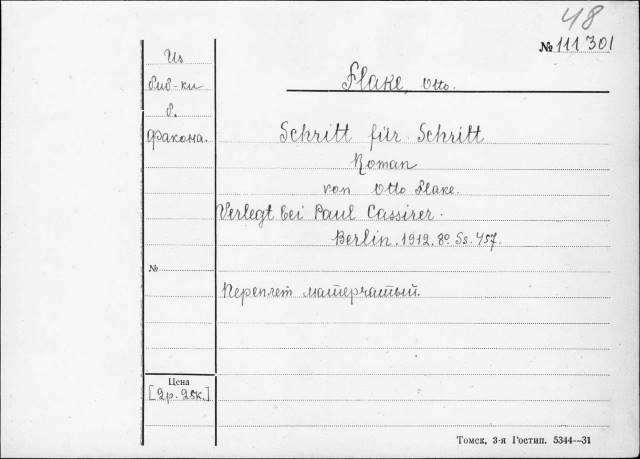 48
№ 111301
Из
биб-ки
б.
Факона.
Flake, Otto.
Schritt für Schritt
Roman
von Otto Flake.
Verlegt bei Paul Cassirer.
Berlin. 1912. 8º. Ss. 457.
№
Переплет матерчатый.
Цена
[2р. 25к.]
Томск, 3-я Гостип. 5344—31